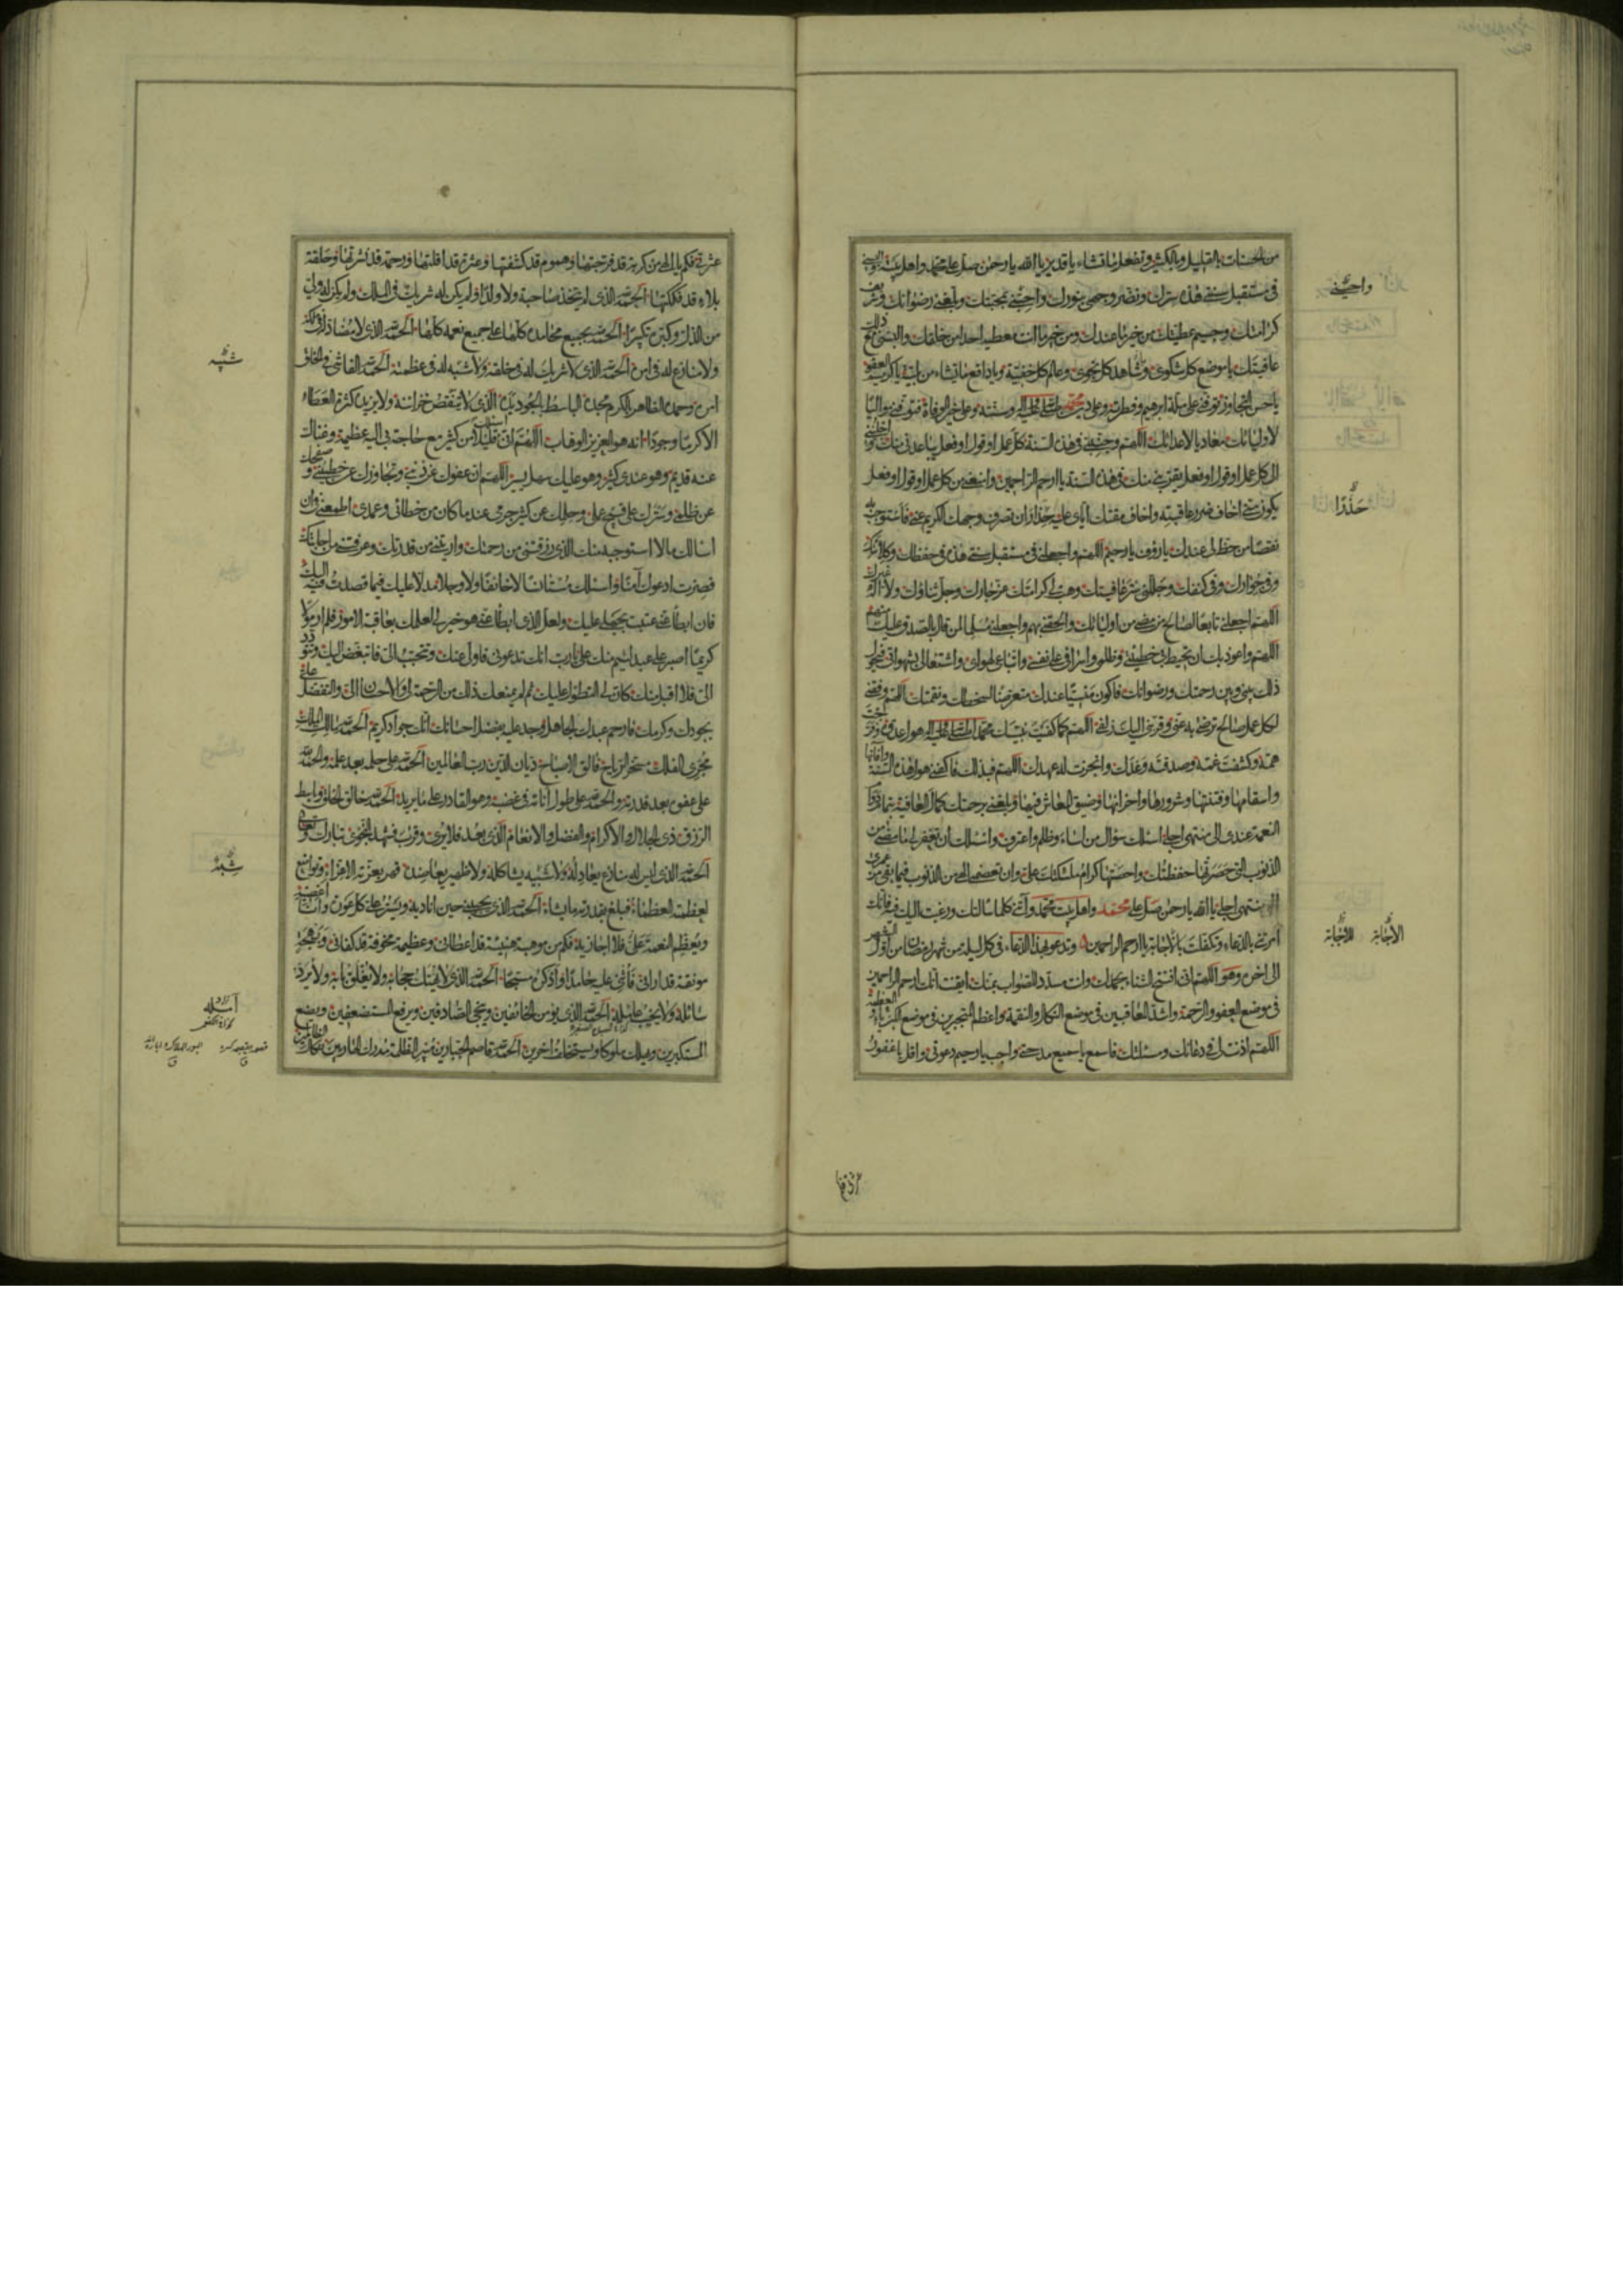 من الحسنات بالقليل وبالكثير وتفعل ما تشاء يا قدير يا الله يا رحمن صل على محمد واهل بيته والبسني
في مستقبل سنتي هذه سترك ونضر وجهي بنورك واحيني بمحبتك وبلغني رضوانك وشريف
كرامتك وجسيم عطيتك من خير ما عندك ومن خير ما انت معطيه احدا من خلقك والبسني مع ذلك
عافيتك يا موضع كل شكوى وشاهد كل نجوى وعالم كل خفية ويا دافع ما تشاء من بلية يا كريم العفو
يا حسن التجاوز توفني على ملة ابرهيم وفطرته وعلى دين محمد صلى الله عليه وآله وسنته وعلى خير الوفاة فتوفني مواليا
لاوليائك معاديا لاعدائك اللهم وجنبني في هذه السنة كل عمل او قول او فعل يباعدني منك واجلبني
الى كل عمل او قول او فعل يقربني منك في هذه السنة يا ارحم الراحمين وامنعني من كل عمل او قول او فعل
يكون مني اخاف ضرر عاقبته واخاف مقتك اياي عليه حذار ان تصرف وجهك الكريم عني فاستوجب به
نقصا من حظ لي عندك يا رؤف يا رحيم اللهم واجعلني في مستقبل سنتي هذه في حفظك وكلائتك
وفي جوارك وفي كنفك وجللني ستر عافيتك وهب لي كرامتك عز جارك وجل ثناؤك ولا اله غيرك
اللهم اجعلني تابعا لصالح من مضى من اوليائك والحقني بهم واجعلني مسلما لمن قال بالصدق عليك منهم
اللهم واعوذ بك ان تحيط بي خطيئتي وظلمي واسرافي على نفسي واتباعي لهواي واشتغالي بشهواتي فيحول
ذلك بيني وبين رحمتك ورضوانك فاكون منسيا عندك متعرضا لسخطك ونقمتك اللهم وفقني
لكل عمل صالح ترضى به عني وقربني اليك زلفى اللهم كما كفيت نبيك محمدا صلى الله عليه وآله هول عدوه وفرجت
همه وكشفت غمه وصدقته وعدك وانجزت له عهدك اللهم فبذلك فاكفني هول هذه السنة وآفاتها
واسقامها وفتنتها وشرورها واحزانها وضيق المعاش فيها وبلغني برحمتك كمال العافية بتمام دوام
النعمة عندي الى منتهى اجلي اسئلك سؤال من اساء وظلم واعترف واسئلك ان تغفر لي ما مضى من
الذنوب التي حصرتها حفظتك واحصتها كرام ملئكتك علي وان تعصمني الهي من الذنوب فيما بقي من عمري
الى منتهى اجلي يا الله يا رحمن صل على محمد واهل بيت محمد وآتني كلما سالتك ورغبت اليك فيه فانك
امرتني بالدعاء وتكفلت بالاجابة يا ارحم الراحمين وتدعو بهذا الدعاء في كل ليلة من شهر رمضان من اول الشهر
الى اخره وهو اللهم اني افتتح الثناء بحمدك وانت مسدد للصواب بمنك ايقنت انك ارحم الراحمين
في موضع العفو والرحمة واشد المعاقبين في موضع النكال والنقمة واعظم المتجبرين في موضع الكبرياء والعظمة
اللهم اذنت لي في دعائك ومسئلتك فاسمع يا سميع مدحتي واجب يا رحيم دعوتي واقل يا غفور
واحيني
حذرا
الاجابة للاجابة
عثرتي فكم يا الهي من كربة قد فرجتها وهموم قد كشفتها وعثرة قد اقلتها ورحمة قد نشرتها وحلقة
بلاء قد فككتها الحمد لله الذي لم يتخذ صاحبة ولا ولدا ولم يكن له شريك في الملك ولم يكن له ولي
من الذل وكبره تكبيرا الحمد لله بجميع محامده كلها على جميع نعمه كلها الحمد لله الذي لا مضاد له في ملكه
ولا منازع له في امره الحمد لله الذي لا شريك له في خلقه ولا شبه له في عظمته الحمد لله الفاشي في الخلق
امره وحمده الظاهر بالكرم مجده الباسط بالجود يده الذي لا تنقص خزائنه ولا يزيده كثرة العطاء
الا كرما وجودا انه هو العزيز الوهاب اللهم اني اسئلك قليلا من كثير مع حاجة بي اليه عظيمة وغناك
عنه قديم وهو عندي كثير وهو عليك سهل يسير اللهم ان عفوك عن ذنبي وتجاوزك عن خطيئتي وصفحك
عن ظلمي وسترك على قبيح عملي وحلمك عن كثير جرمي عند ما كان من خطائي وعمدي اطمعني في ان
اسالك ما لا استوجبه منك الذي رزقتني من رحمتك واريتني من قدرتك وعرفتني من اجابتك
فصرت ادعوك آمنا واسئلك مستانسا لا خائفا ولا وجلا مدلا عليك فيما قصدت فيه اليك
فان ابطأ عني عتبت بجهلي عليك ولعل الذي ابطأ عني هو خير لي لعلمك بعاقبة الامور فلم ار مولا
كريما اصبر على عبد لئيم منك علي يا رب انك تدعوني فاولي عنك وتتحبب الي فاتبغض اليك وتتودد
الي فلا اقبل منك كان لي التطول عليك ثم لم يمنعك ذلك من الرحمة لي والاحسان الي والتفضل علي
بجودك وكرمك فارحم عبدك الجاهل وجد عليه بفضل احسانك انك جواد كريم الحمد لله مالك الملك
مجري الفلك مسخر الرياح فالق الاصباح ديان الدين رب العالمين الحمد لله على حلمه بعد علمه والحمد لله
على عفوه بعد قدرته والحمد لله على طول اناته في غضبه وهو القادر على ما يريد الحمد لله خالق الخلق وباسط
الرزق ذي الجلال والاكرام والفضل والانعام الذي بعد فلا يرى وقرب فشهد النجوى تبارك وتعالى
الحمد لله الذي ليس له منازع يعادله ولا شبيه يشاكله ولا ظهير يعاضده قهر بعزته الاعزاء وتواضع
لعظمته العظماء فبلغ بقدرته ما يشاء الحمد لله الذي يجيبني حين اناديه ويستر علي كل عورة وانا اعصيه
ويعظم النعمة علي فلا اجازيه فكم من موهبة هنيئة قد اعطاني وعظيمة مخوفة قد كفاني وبهجة
مونقة قد اراني فاثني عليه حامدا واذكره مسبحا الحمد لله الذي لا يهتك حجابه ولا يغلق بابه ولا يرد
سائله ولا يخيب آمله الحمد لله الذي يؤمن الخائفين وينجي الصادقين ويرفع المستضعفين ويضع
المستكبرين ويهلك ملوكا ويستخلف اخرين الحمد لله قاصم الجبارين مبير الظلمة مدرك الهاربين نكال الظالمين
شبيه
شبه
آمله
عثرتي فكم